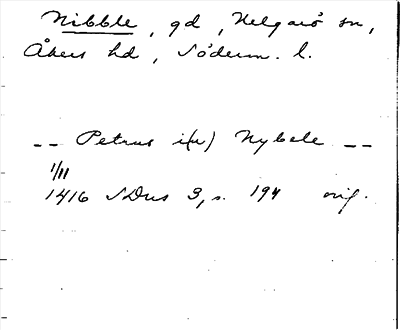 Nibble, gd, Helgarö sn,
Åkers hd, Söderm. l.
-- Petrus i(n) Nybele --
1/11
1416 SDns 3, s. 194 orig.